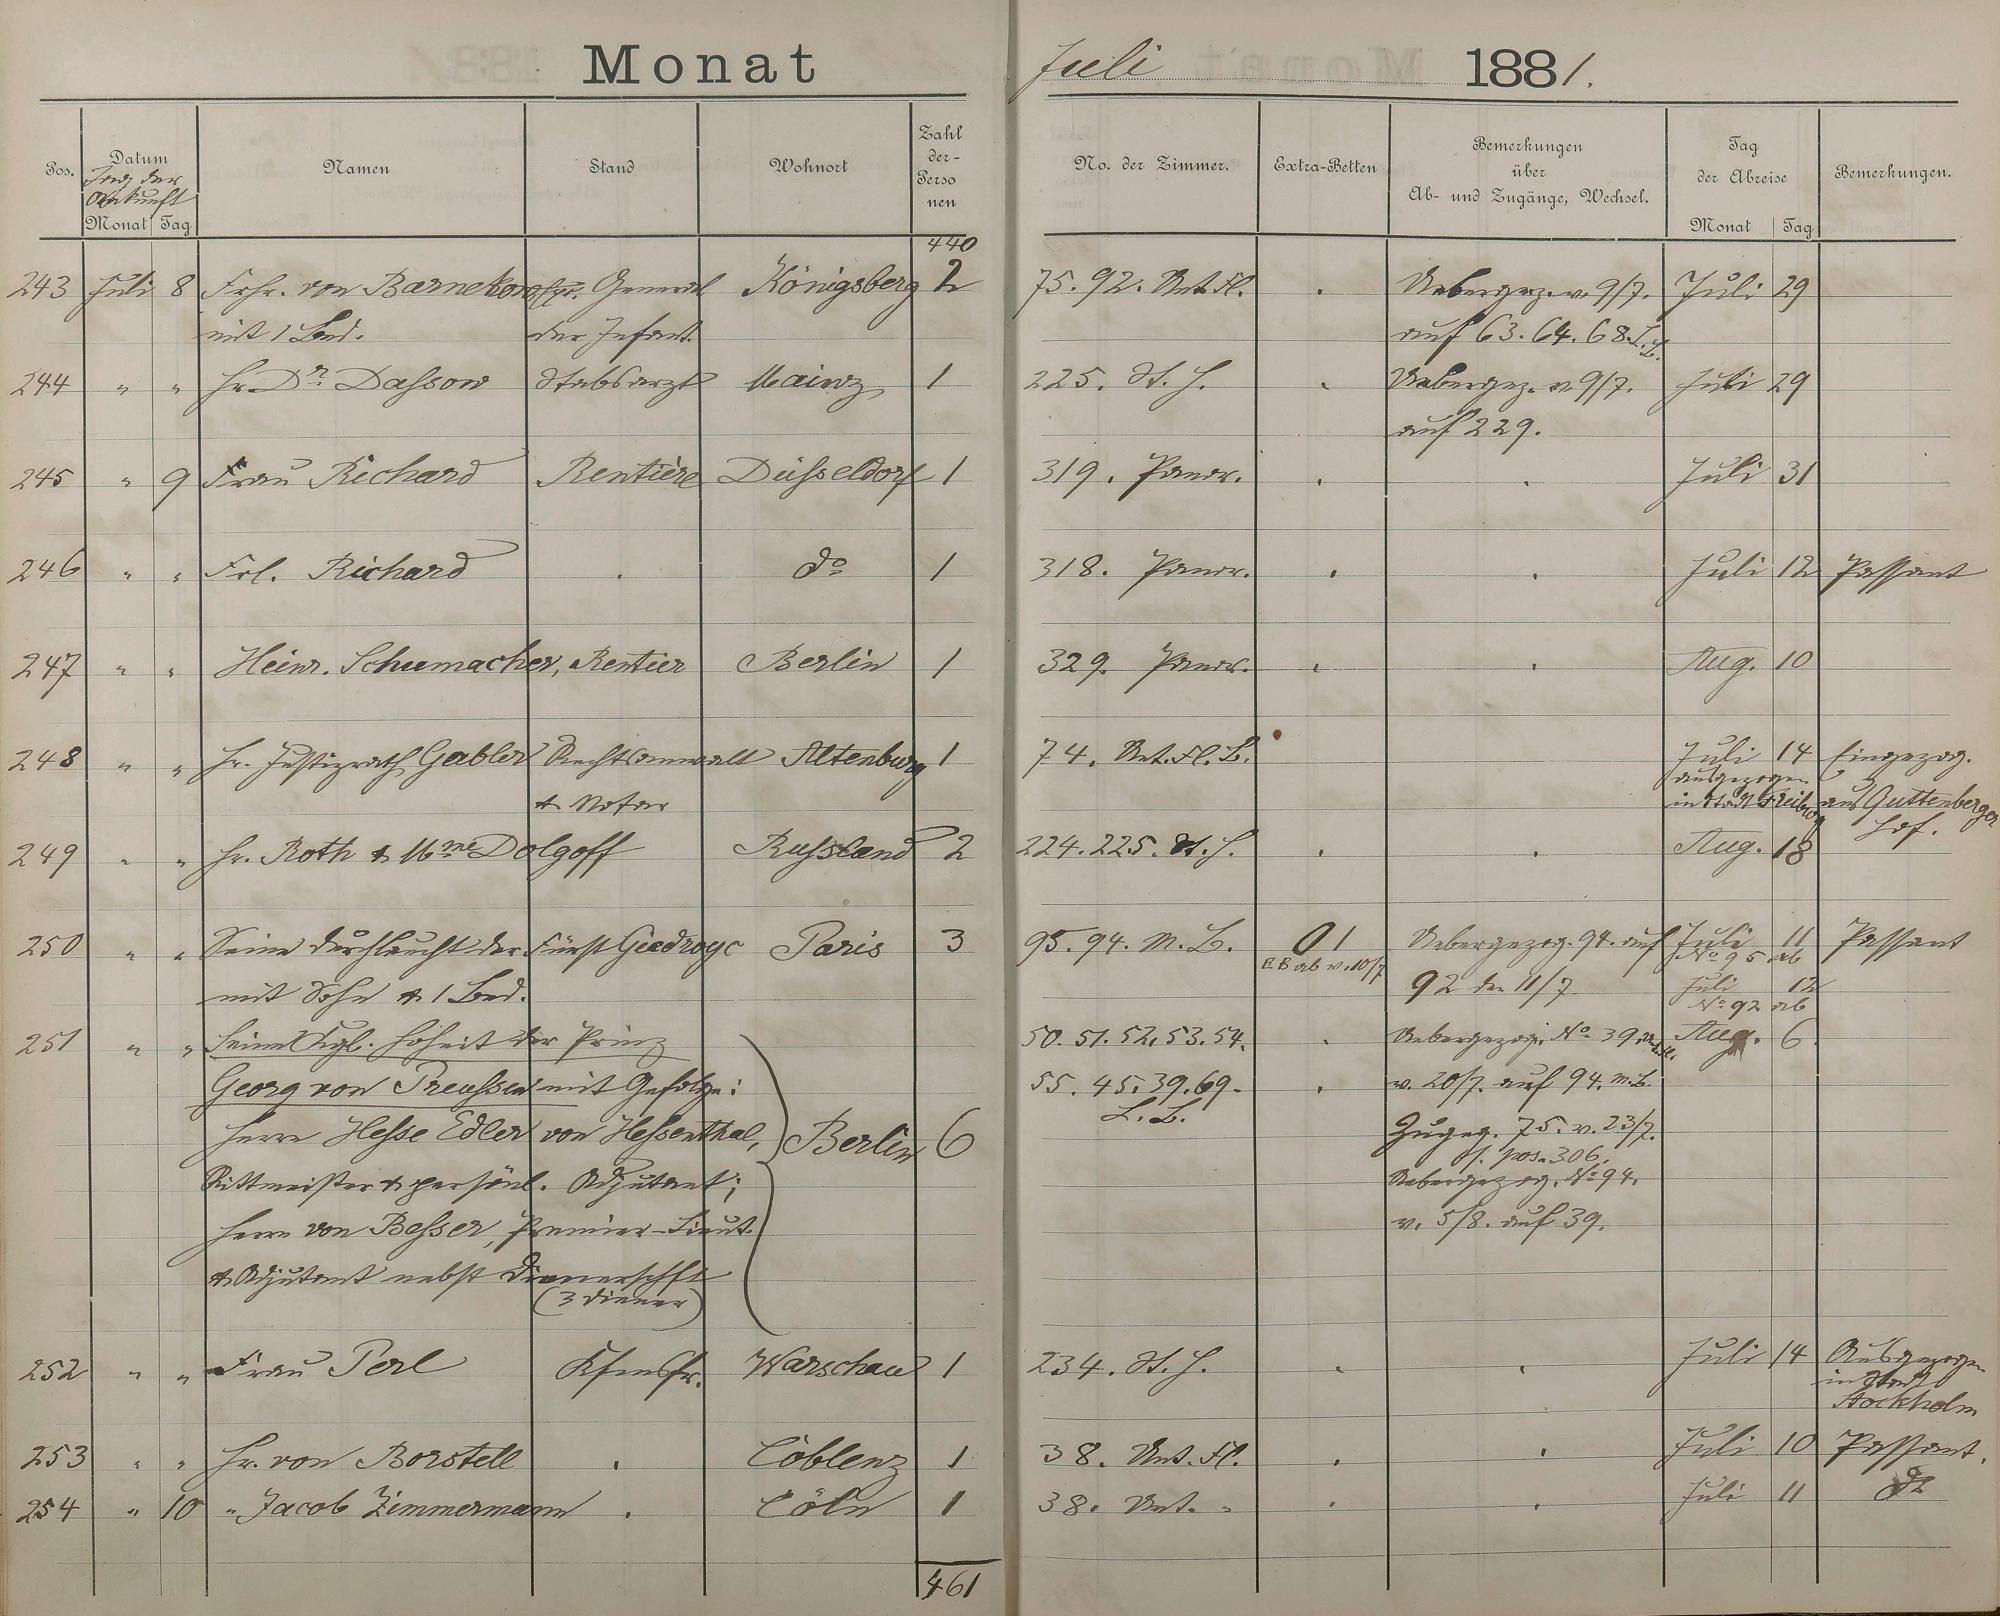 Monat Juli 1881.
Pos. Datum Namen Stand Wohnort Zahl der Perso nen No. der Zimmer. Extra-Betten Bemerkungen über Ab- und Zugänge, Wechsel. Tag der Abreise Bemerkungen.
Tag der Ankunft
Monat Tag Monat Tag
440
243 Juli 8 Frhr. von Barnekow General Königsberg 2 75. 92. Unt. Fl. . Uebergez. v. 9/7. Juli 29
mit 1 Bed. der Infant. auf 63. 64. 68. L. B.
244 " " Hr. Dr. Dassow Stabsarzt Mainz 1 225. St. H. . Uebergez. v. 9/7. Juli 29
auf 229.
245 " 9 Frau Richard Rentière Düsseldorf 1 319. Panor. . . Juli 31
246 " " Frl. Richard . do 1 318. Panor. . . Juli 12 Passant
247 " " Heinr. Schumacher, Rentier Berlin 1 329. Panor. . . Aug. 10
248 " " Hr. Justizrath Gabler Rechtsanwalt Altenburg 1 74. Unt. Fl. B. Juli 14 Eingezog.
& Notar ausgezogen in Stadt Freiburg aus Guttenberger Hof.
249 " " Hr. Roth & Mme Dolgoff Russland 2 224. 225. St. H. . . Aug. 18
250 " " Seine Durchlaucht der Fürst Giedroyc Paris 3 95. 94. M. B. 0 1 Uebergezog. 94. auf Juli 11 Passant
E B ab v. 10/7 No 95 ab
mit Sohn & 1 Bed. 92 den 11/7. Juli 12
No 92 ab
251 " " Seine Kgl. Hoheit der Prinz 50. 51. 52. 53. 54. . Uebergezog. No 39. Unt. Fl. Aug. 6
Georg von Preussen mit Gefolge: 55. 45. 39. 69. . v. 20/7. auf 94. M. B.
L. B.
Herrn Hesse Edler von Hessenthal, Berlin 6 Zugeg. 75. v. 23/7.
f. pos. 306.
Rittmeister & persönl. Adjutant; Uebergezog. No 94.
Herrn von Besser, Premier-Lieut. v. 5/8. auf 39.
& Adjutant nebst Dienerschft
(3 Diener)
252 " " Frau Perl Kfmsfr. Warschau 1 234. St. H. . . Juli 14 Ausgezogen
in Stadt
Stockholm
253 " " Hr. von Borstell . Coblenz 1 38. Unt. Fl. . . Juli 10 Passant.
254 " 10 " Jacob Zimmermann . Cöln 1 38. Unt. " . . Juli 11 do
461